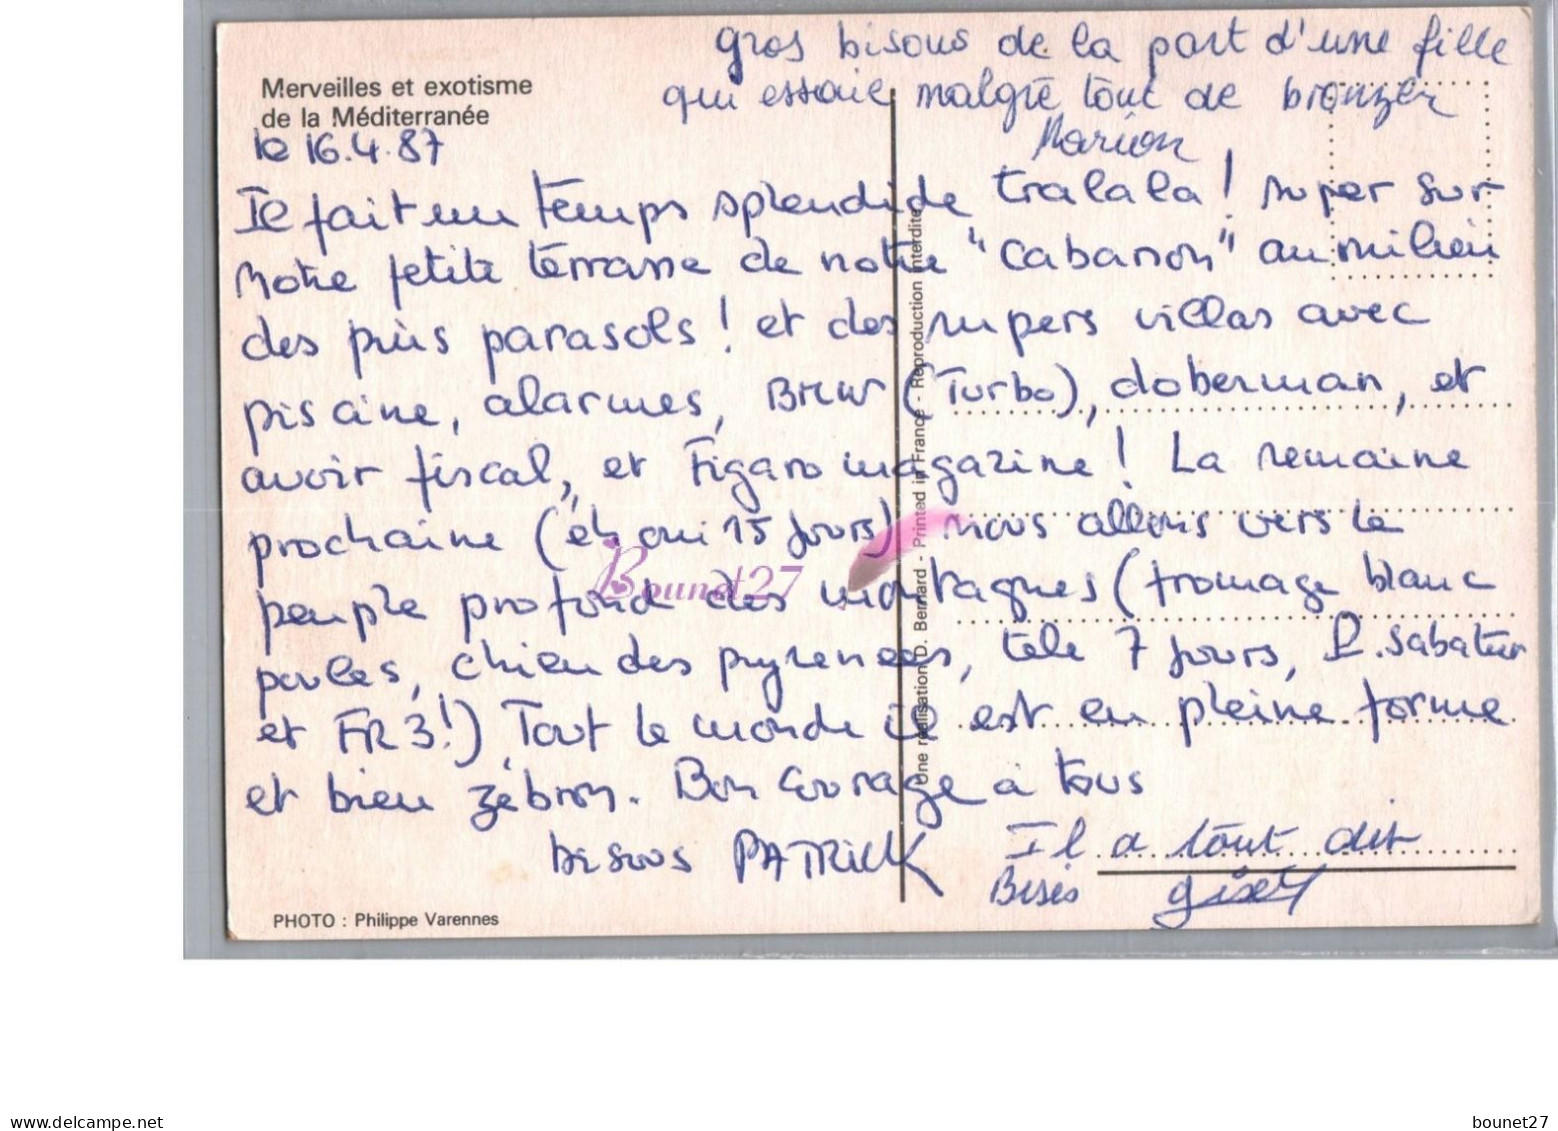 gros bisous de la part d'une fille
qui essaie malgré tout de bronzer
Marion
Merveilles et exotisme
de la Méditerranée
le 16.4.87
Il fait un temps splendide tralala! super sur
notre petite terrasse de notre "cabanon" au milieu
des pins parasols! et des supers villas avec
piscine, alarmes, BMW (Turbo), doberman, et
avoir fiscal, et Figaro magazine! La semaine
prochaine (eh oui 15 jours) nous allons vers le
peuple profond des montagnes (fromage blanc
poules, chien des pyrenees, tele 7 jours, P. Sabatier
et FR3!) Tout le monde il est en pleine forme
et bien zébron. Bon courage à tous
bisous PATRICK
Il a tout dit
Bises
PHOTO : Philippe Varennes
Une réalisation D. Bernard - Printed in France - Reproduction interdite
Bounet27
www.delcampe.net
bounet27